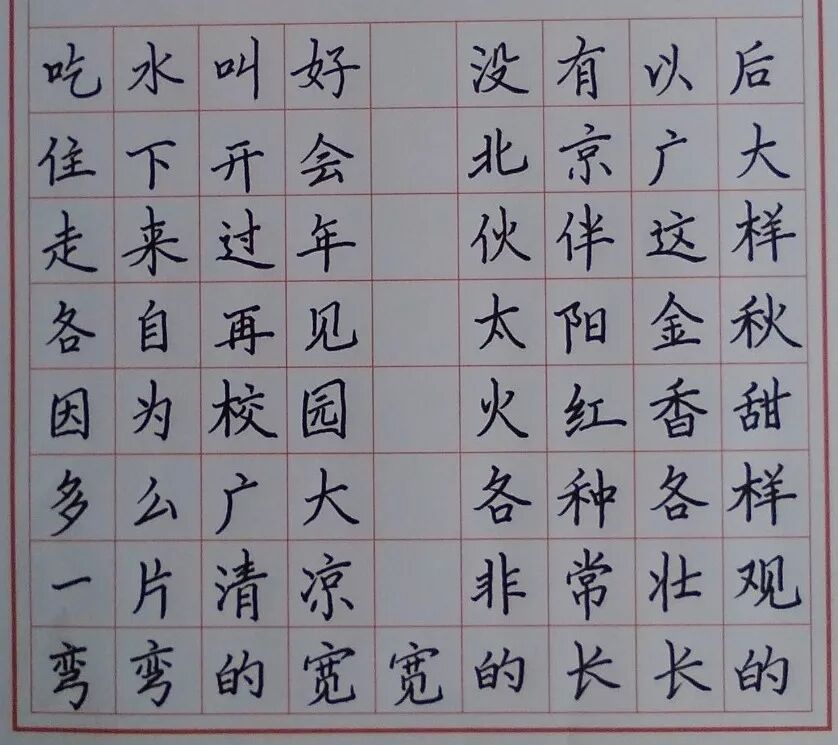 吃水叫好 没有以后
住下开会 北京广大
走来过年 伙伴这样
各自再见 太阳金秋
因为校园 火红香甜
多么广大 各种各样
一片清凉 非常壮观
弯弯的宽宽的长长的